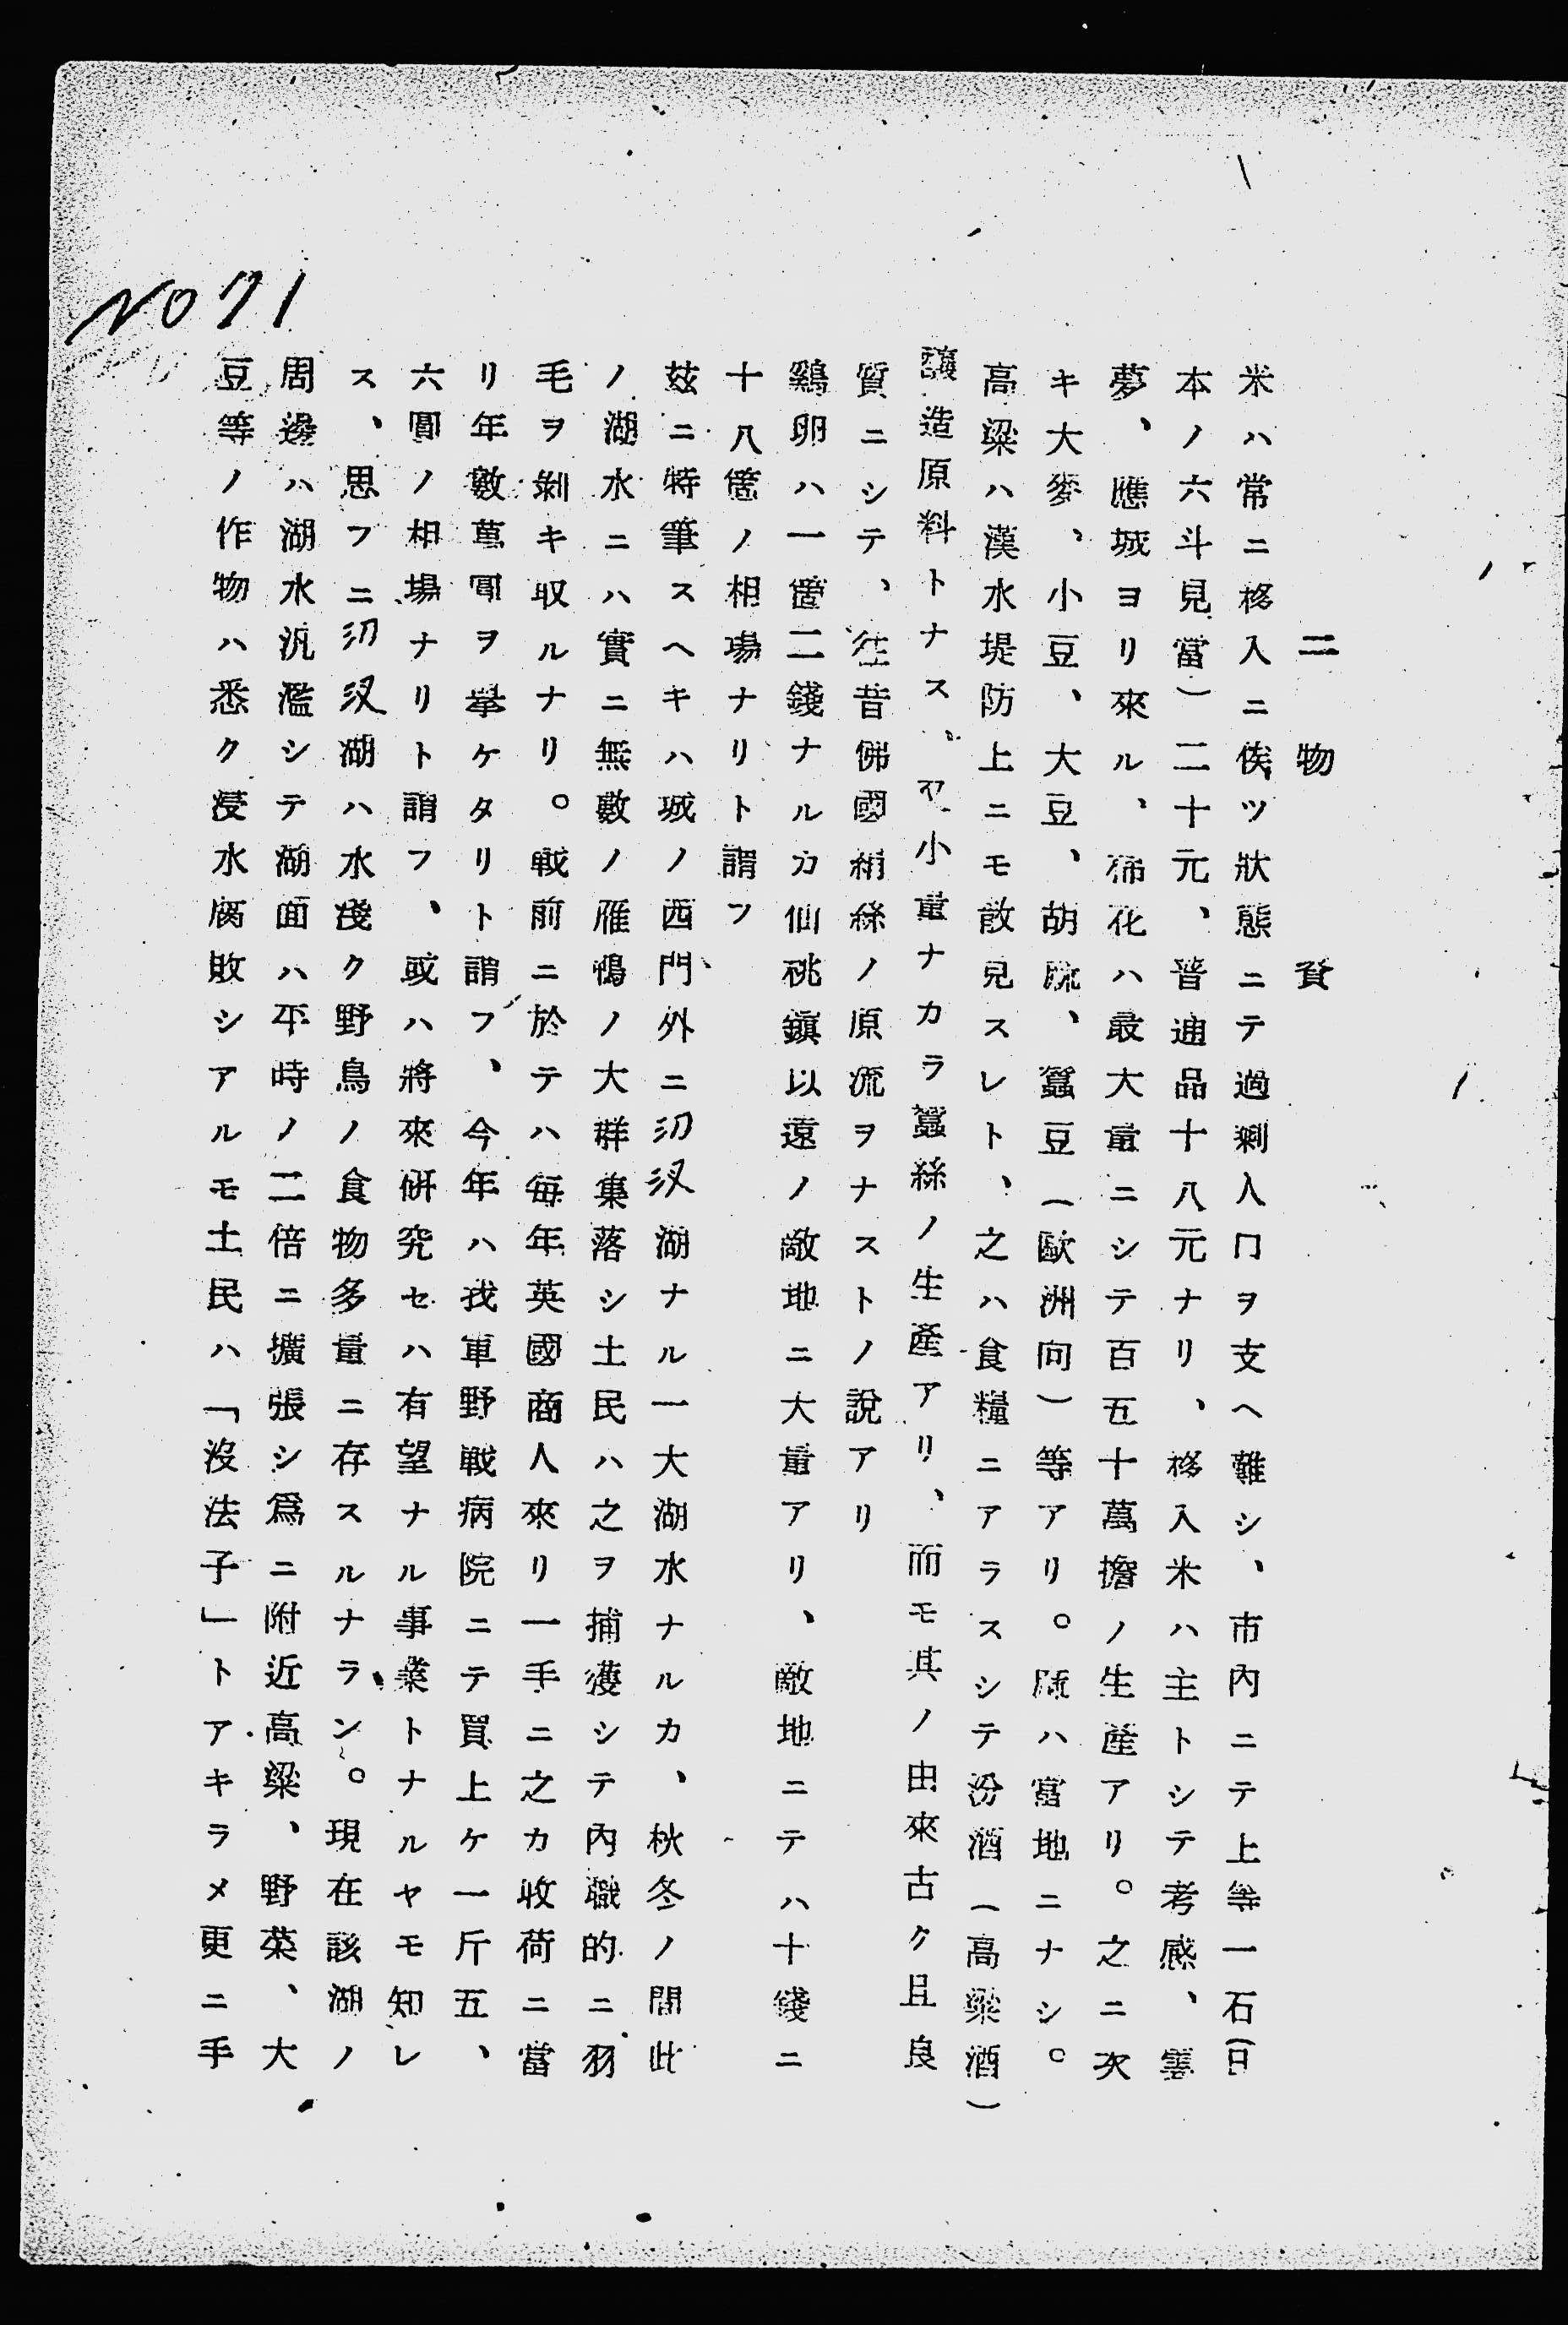 NO 71
二物資
米ハ常ニ移入ニ俟ツ狀態ニテ過剩人口ヲ支ヘ難シ、市內ニテ上等一石(日
本ノ六斗見當)二十元、普通品十八元ナリ、移入米ハ主トシテ孝感、雲
夢、應城ヨリ來ル、棉花ハ最大量ニシテ百五十萬擔ノ生産アリ。之ニ次
キ大麥、小豆、大豆、胡麻、蠶豆(歐洲向)等アリ。麻ハ當地ニナシ。
高粱ハ漢水堤防上ニモ散見スレト、之ハ食糧ニアラスシテ汾酒(高粱酒)
釀造原料トナス、又小量ナカラ蠶絲ノ生產アリ、而モ其ノ由來古ク且良
質ニシテ、往昔佛國絹絲ノ原流ヲナストノ說アリ
鷄卵ハ一箇二錢ナルカ仙桃鎭以遠ノ敵地ニ大量アリ、敵地ニテハ十錢ニ
十八箇ノ相場ナリト謂フ
玆ニ特筆スヘキハ城ノ西門外ニ汈汊湖ナル一大湖水ナルカ、秋冬ノ間此
ノ湖水ニハ實ニ無數ノ雁鴨ノ大群集落シ土民ハ之ヲ捕獲シテ內職的ニ羽
毛ヲ剝キ収ルナリ。戰前ニ於テハ每年英國商人來リ一手ニ之カ收荷ニ當
リ年數萬圓ヲ擧ケタリト謂フ、今年ハ我軍野戰病院ニテ買上ケ一斤五、
六圓ノ相場ナリト謂フ、或ハ將來硏究セハ有望ナル事業トナルヤモ知レ
ス、思フニ汈汊湖ハ水淺ク野鳥ノ食物多量ニ存スルナラン。現在該湖ノ
周邊ハ湖水汎濫シテ湖面ハ平時ノ二倍ニ擴張シ爲ニ附近高粱、野菜、大
豆等ノ作物ハ悉ク浸水腐敗シアルモ土民ハ「沒法子」トアキラメ更ニ手